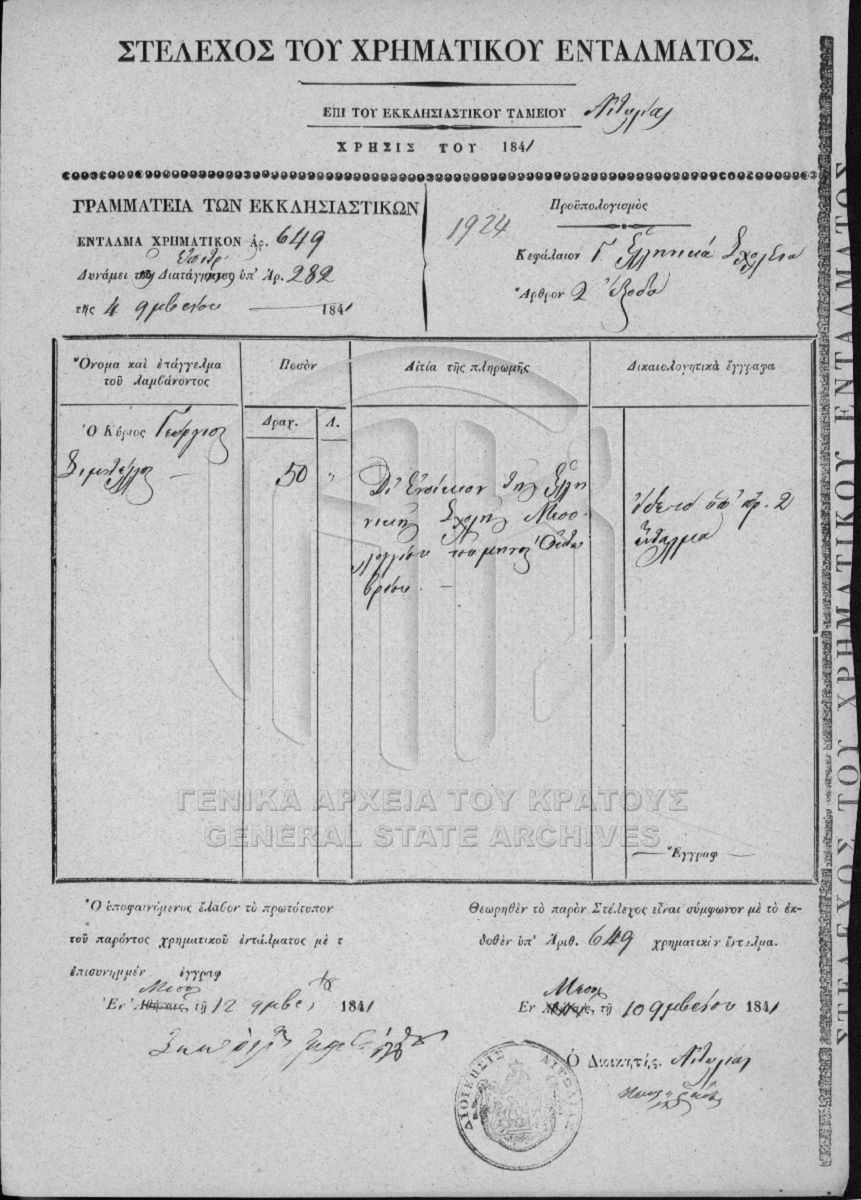 ΣΤΕΛΕΧΟΣ ΤΟΥ ΧΡΗΜΑΤΙΚΟΥ ΕΝΤΑΛΜΑΤΟΣ.
ΕΠΙ ΤΟΥ ΕΚΚΛΗΣΙΑΣΤΙΚΟΥ ΤΑΜΕΙΟΥ Αἰτωλίας
ΧΡΗΣΙΣ ΤΟΥ 1841
ΓΡΑΜΜΑΤΕΙΑ ΤΩΝ ΕΚΚΛΗΣΙΑΣΤΙΚΩΝ
ΕΝΤΑΛΜΑ ΧΡΗΜΑΤΙΚΟΝ Ἀρ. 649
Δυνάμει τοῦ Διατάγματος ὑπ' Ἀρ. 282
τῆς 4 9μβρίου 1841
1924
Προϋπολογισμὸς
Κεφάλαιον Γ Ἑλληνικά Σχολεῖα
Ἄρθρον 2 Ἔξοδα
Ὄνομα καὶ ἐπάγγελμα τοῦ λαμβάνοντος
Ποσὸν
Αἰτία τῆς πληρωμῆς
Δικαιολογητικὰ ἔγγραφα
Δραχ.
Λ.
Ὁ Κύριος Γεώργιος
50 "
Δι' Ἐνοίκιον τῆς Ἑλλη
νικῆς Σχολῆς Μεσο
λογγίου τοῦ μηνὸς Ὀκτω
βρίου. —
ὑπ' ἀρ. 2
Ἔνταλμα
Ἔγγραφ
Ὁ ὑποφαινόμενος ἔλαβον τὸ πρωτότυπον
τοῦ παρόντος χρηματικοῦ ἐντάλματος μὲ τ
ἐπισυνημμέν ἐγγραφ
Μεσολ
Ἐν Ἀθήναις τῇ 12 9μβρίου 1841
Θεωρηθὲν τὸ παρὸν Στέλεχος εἶναι σύμφωνον μὲ τὸ ἐκ-
δοθὲν ὑπ' Ἀριθ. 649 χρηματικὸν ἔνταλμα.
Μεσολ
Ἐν Ἀθήναις τῇ 10 9μβρίου 1841
Ὁ Διοικητὴς Αἰτωλίας
ΔΙΟΙΚΗΣΙΣ ΑΙΤΩΛΙΑΣ
ΓΕΝΙΚΑ ΑΡΧΕΙΑ ΤΟΥ ΚΡΑΤΟΥΣ
GENERAL STATE ARCHIVES
ΣΤΕΛΕΧΟΣ ΤΟΥ ΧΡΗΜΑΤΙΚΟΥ ΕΝΤΑΛΜΑΤΟΣ